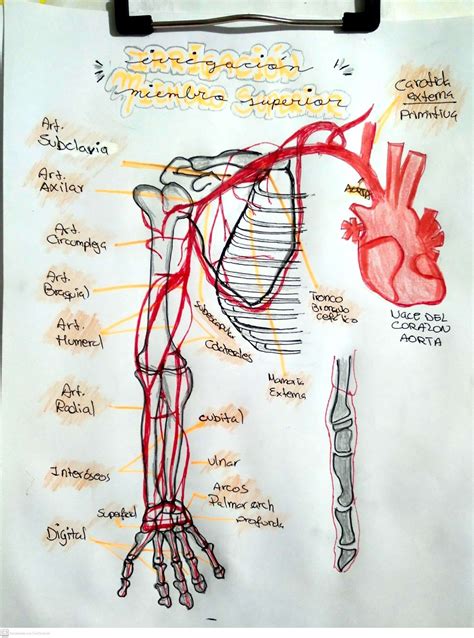 "irrigación
miembro superior"
Carotida
externa
Primitiva
Art.
Subclavia
Art.
Axilar
Art.
Circumpleja
Art.
Braquial
Art.
Humeral
Art.
Radial
Interóseos
Superficial
Digital
Subescapular
Colaterales
Mamaria
Externa
Tronco
Braquio
Cefálico
Aorta
NACE DEL
CORAZON
AORTA
cubital
ulnar
Arcos
Palmar arch
profunda